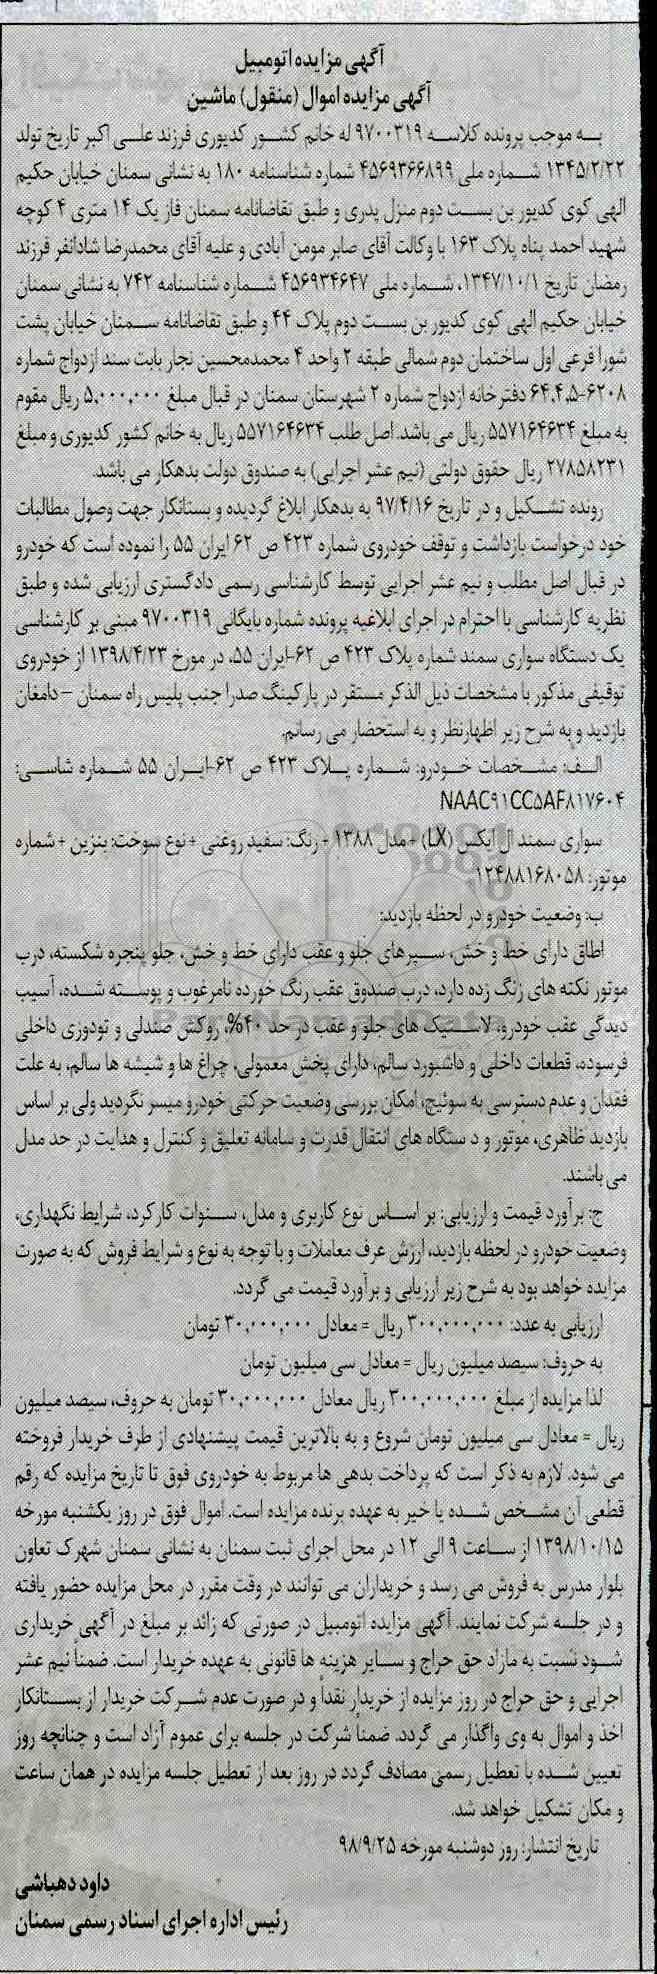 آگهی مزایده اتومبیل
آگهی مزایده اموال (منقول) ماشین
به موجب پرونده کلاسه ۹۷۰۰۳۱۹ له خانم کشور کدیوری فرزند علی اکبر تاریخ تولد
۱۳۴۵/۲/۲۲ شماره ملی ۴۵۶۹۳۶۶۸۹۹ شماره شناسنامه ۱۸۰ به نشانی سمنان خیابان حکیم
الهی کوی کدیور بن بست دوم منزل پدری و طبق تقاضانامه سمنان فاز یک ۱۴ متری ۴ کوچه
شهید احمد پناه پلاک ۱۶۳ با وکالت آقای صابر مومن آبادی و علیه آقای محمدرضا شادانفر فرزند
رمضان تاریخ ۱۳۴۷/۱۰/۱، شماره ملی ۴۵۶۹۳۴۶۴۷ شماره شناسنامه ۷۴۲ به نشانی سمنان
خیابان حکیم الهی کوی کدیور بن بست دوم پلاک ۴۴ و طبق تقاضانامه سمنان خیابان پشت
شورا فرعی اول ساختمان دوم شمالی طبقه ۲ واحد ۴ محمدمحسین نجار بابت سند ازدواج شماره
۶۴،۴،۵-۶۲۰۸ دفترخانه ازدواج شماره ۲ شهرستان سمنان در قبال مبلغ ۵,۰۰۰,۰۰۰ ریال مقوم
به مبلغ ۵۵۷۱۶۴۶۳۴ ریال می باشد. اصل طلب ۵۵۷۱۶۴۶۳۴ ریال به خانم کشور کدیوری و مبلغ
۲۷۸۵۸۲۳۱ ریال حقوق دولتی (نیم عشر اجرایی) به صندوق دولت بدهکار می باشد.
رونده تشکیل و در تاریخ ۹۷/۴/۱۶ به بدهکار ابلاغ گردیده و بستانکار جهت وصول مطالبات
خود درخواست بازداشت و توقف خودروی شماره ۴۲۳ ص ۶۲ ایران ۵۵ را نموده است که خودرو
در قبال اصل مطلب و نیم عشر اجرایی توسط کارشناسی رسمی دادگستری ارزیابی شده و طبق
نظریه کارشناسی با احترام در اجرای ابلاغیه پرونده شماره بایگانی ۹۷۰۰۳۱۹ مبنی بر کارشناسی
یک دستگاه سواری سمند شماره پلاک ۴۲۳ ص ۶۲-ایران ۵۵، در مورخ ۱۳۹۸/۴/۲۳ از خودروی
توقیفی مذکور با مشخصات ذیل الذکر مستقر در پارکینگ صدرا جنب پلیس راه سمنان – دامغان
بازدید و به شرح زیر اظهارنظر و به استحضار می رسانم.
الف: مشخصات خودرو: شماره پلاک ۴۲۳ ص ۶۲-ایران ۵۵ شماره شاسی:
NAAC۹۱CC۵AF۸۱۷۶۰۴
سواری سمند ال ایکس (LX) + مدل ۱۳۸۸ + رنگ: سفید روغنی + نوع سوخت: بنزین + شماره
موتور: ۱۲۴۸۸۱۶۸۰۵۸
ب: وضعیت خودرو در لحظه بازدید:
اطاق دارای خط و خش، سپرهای جلو و عقب دارای خط و خش، جلو پنجره شکسته، درب
موتور نکته های زنگ زده دارد، درب صندوق عقب رنگ خورده نامرغوب و پوسته شده، آسیب
دیدگی عقب خودرو، لاستیک های جلو و عقب در حد ۴۰%، روکش صندلی و تودوزی داخلی
فرسوده، قطعات داخلی و داشبورد سالم، دارای پخش معمولی، چراغ ها و شیشه ها سالم، به علت
فقدان و عدم دسترسی به سوئیچ، امکان بررسی وضعیت حرکتی خودرو میسر نگردید ولی بر اساس
بازدید ظاهری، موتور و د ستگاه های انتقال قدرت و سامانه تعلیق و کنترل و هدایت در حد مدل
می باشند.
ج: برآورد قیمت و ارزیابی: بر اساس نوع کاربری و مدل، سنوات کارکرد، شرایط نگهداری،
وضعیت خودرو در لحظه بازدید، ارزش عرف معاملات و با توجه به نوع و شرایط فروش که به صورت
مزایده خواهد بود به شرح زیر ارزیابی و برآورد قیمت می گردد.
ارزیابی به عدد: ۳۰۰,۰۰۰,۰۰۰ ریال = معادل ۳۰,۰۰۰,۰۰۰ تومان
به حروف: سیصد میلیون ریال = معادل سی میلیون تومان
لذا مزایده از مبلغ ۳۰۰,۰۰۰,۰۰۰ ریال معادل ۳۰,۰۰۰,۰۰۰ تومان به حروف، سیصد میلیون
ریال = معادل سی میلیون تومان شروع و به بالاترین قیمت پیشنهادی از طرف خریدار فروخته
می شود. لازم به ذکر است که پرداخت بدهی ها مربوط به خودروی فوق تا تاریخ مزایده که رقم
قطعی آن مشخص شده یا خیر به عهده برنده مزایده است. اموال فوق در روز یکشنبه مورخه
۱۳۹۸/۱۰/۱۵ از ساعت ۹ الی ۱۲ در محل اجرای ثبت سمنان به نشانی سمنان شهرک تعاون
بلوار مدرس به فروش می رسد و خریداران می توانند در وقت مقرر در محل مزایده حضور یافته
و در جلسه شرکت نمایند. آگهی مزایده اتومبیل در صورتی که زائد بر مبلغ در آگهی خریداری
شود نسبت به مازاد حق حراج و سایر هزینه ها قانونی به عهده خریدار است. ضمناً نیم عشر
اجرایی و حق حراج در روز مزایده از خریدار نقداً و در صورت عدم شرکت خریدار از بستانکار
اخذ و اموال به وی واگذار می گردد. ضمناً شرکت در جلسه برای عموم آزاد است و چنانچه روز
تعیین شده با تعطیل رسمی مصادف گردد در روز بعد از تعطیل جلسه مزایده در همان ساعت
و مکان تشکیل خواهد شد.
تاریخ انتشار: روز دوشنبه مورخه ۹۸/۹/۲۵
داود دهباشی
رئیس اداره اجرای اسناد رسمی سمنان